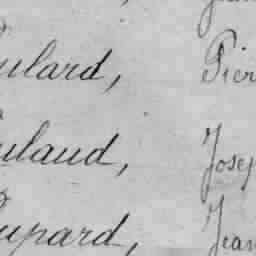 ulard, Pier
ulaud, Josep
upard, Jean